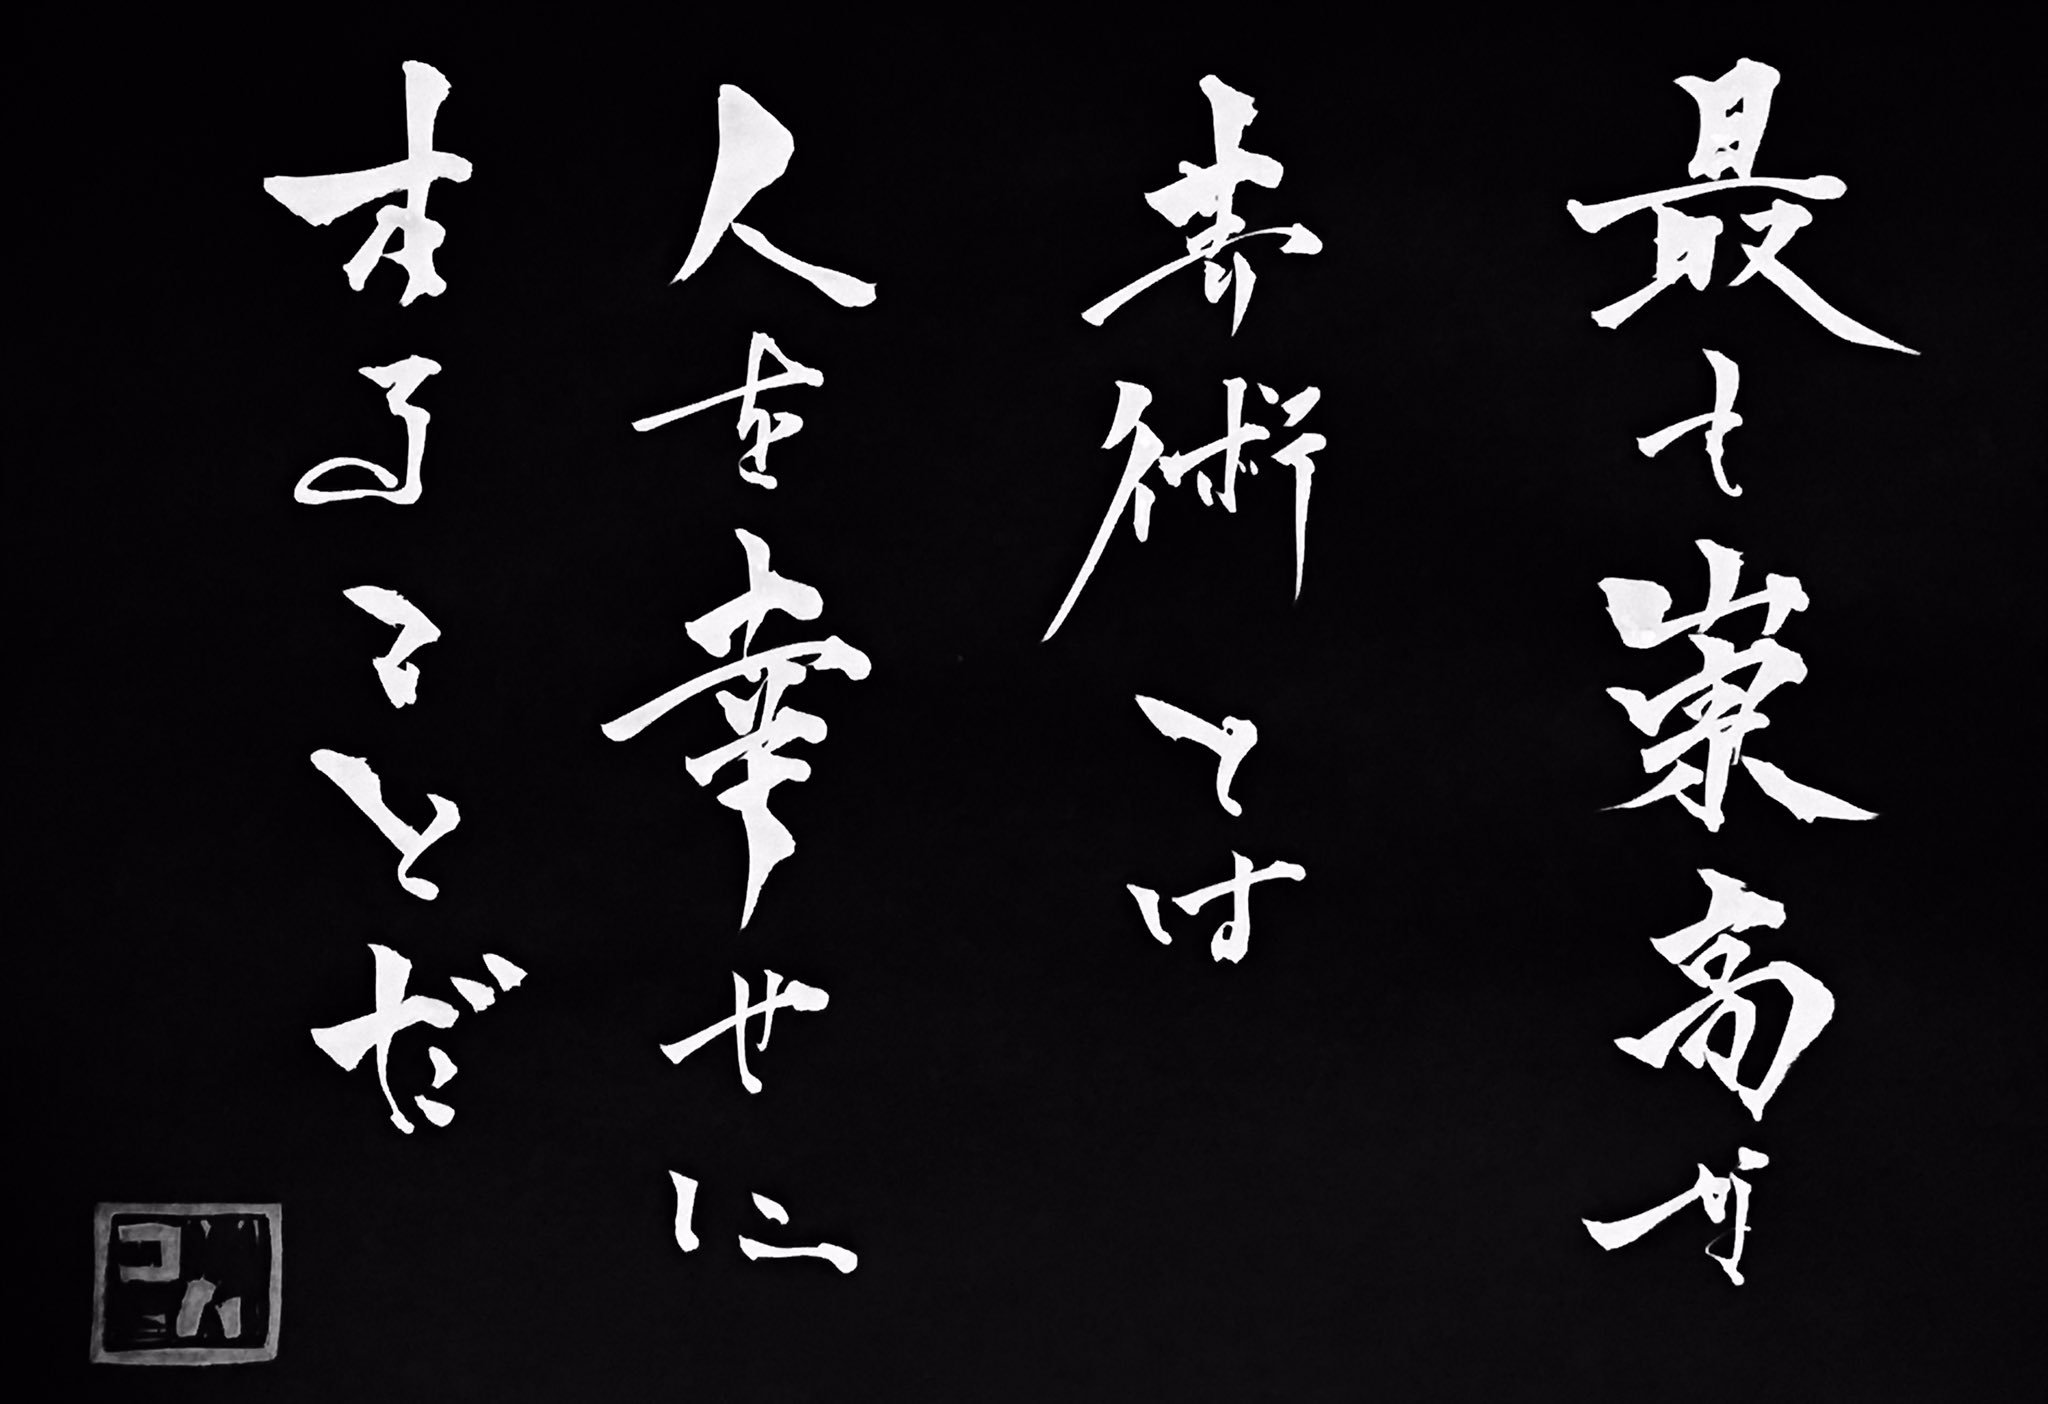 最も崇高な
芸術とは
人を幸せに
することだ